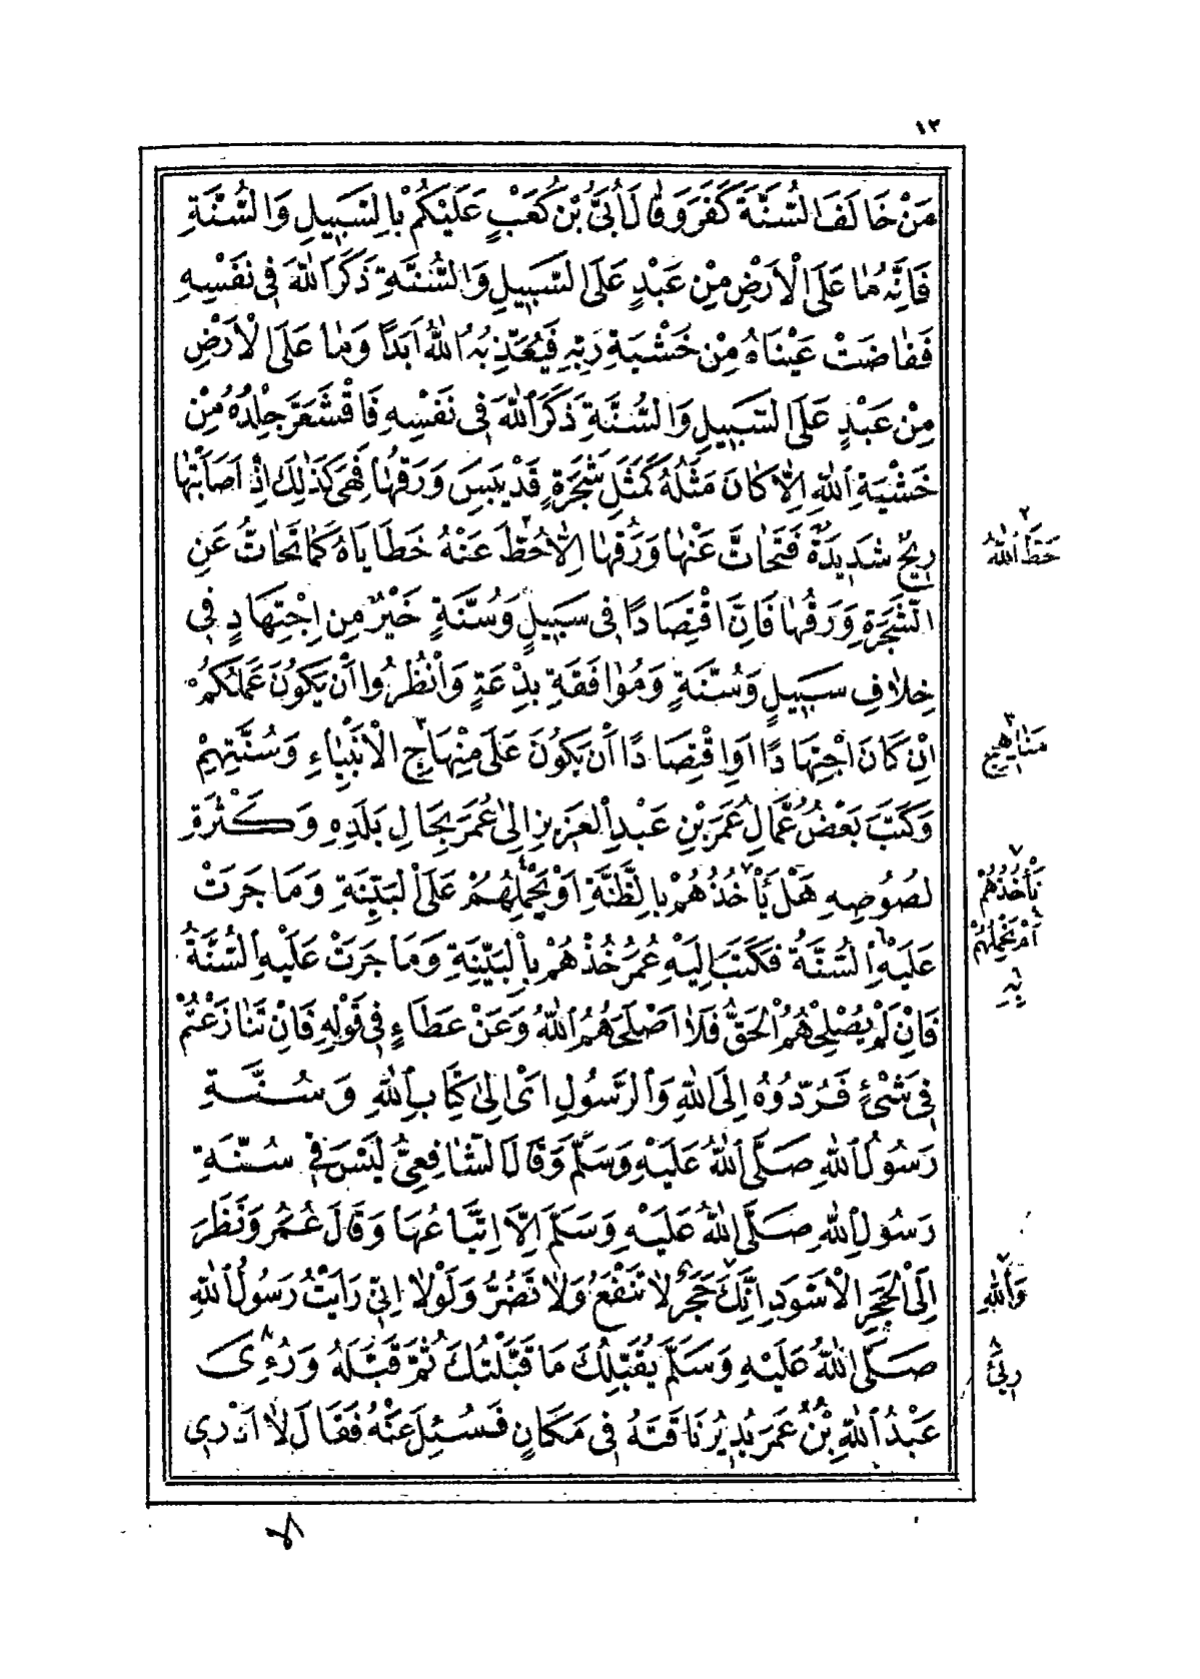 ١٢
مَنْ خَالَفَ السُّنَّةَ كَفَرَ وَقَالَ أُبَيُّ بْنُ كَعْبٍ عَلَيْكُمْ بِالسَّبِيلِ وَالسُّنَّةِ
فَإِنَّهُ مَا عَلَى الْأَرْضِ مِنْ عَبْدٍ عَلَى السَّبِيلِ وَالسُّنَّةِ ذَكَرَ اللّٰهَ فِي نَفْسِهِ
فَفَاضَتْ عَيْنَاهُ مِنْ خَشْيَةِ رَبِّهِ فَيُعَذِّبُهُ اللّٰهُ أَبَدًا وَمَا عَلَى الْأَرْضِ
مِنْ عَبْدٍ عَلَى السَّبِيلِ وَالسُّنَّةِ ذَكَرَ اللّٰهَ فِي نَفْسِهِ فَاقْشَعَرَّ جِلْدُهُ مِنْ
خَشْيَةِ اللّٰهِ إِلَّا كَانَ مَثَلُهُ كَمَثَلِ شَجَرَةٍ قَدْ يَبِسَ وَرَقُهَا فَهِيَ كَذٰلِكَ إِذْ أَصَابَتْهَا
رِيحٌ شَدِيدَةٌ فَتَحَاتَّ عَنْهَا وَرَقُهَا إِلَّا حُطَّ٢ عَنْهُ خَطَايَاهُ كَمَا تَحَاتُّ عَنِ
٢ حَطَّ اللّٰهُ
الشَّجَرَةِ وَرَقُهَا فَإِنَّ اقْتِصَادًا فِي سَبِيلٍ وَسُنَّةٍ خَيْرٌ مِنِ اجْتِهَادٍ فِي
خِلَافِ سَبِيلٍ وَسُنَّةٍ وَمُوَافَقَةِ بِدْعَةٍ وَانْظُرُوا أَنْ يَكُونَ عَمَلُكُمْ
إِنْ كَانَ اجْتِهَادًا أَوِ اقْتِصَادًا أَنْ يَكُونَ عَلَى مِنْهَاجِ٣ الْأَنْبِيَاءِ وَسُنَّتِهِمْ
٣ مَنَاهِجِ
وَكَتَبَ بَعْضُ عُمَّالِ عُمَرَ بْنِ عَبْدِ الْعَزِيزِ إِلَى عُمَرَ بِحَالِ بَلَدِهِ وَكَثْرَةِ
لُصُوصِهِ هَلْ يَأْخُذُهُمْ٧ بِالظِّنَّةِ أَوْ يَحْمِلُهُمْ٤ عَلَى الْبَيِّنَةِ وَمَا جَرَتْ
٧ نَأْخُذُهُمْ
عَلَيْهِ٦ السُّنَّةُ فَكَتَبَ إِلَيْهِ عُمَرُ خُذْهُمْ بِالْبَيِّنَةِ وَمَا جَرَتْ عَلَيْهِ السُّنَّةُ
أَمْ نَحْمِلُهُمْ
٦ بِهِ
فَإِنْ لَمْ يُصْلِحْهُمُ الْحَقُّ فَلَا أَصْلَحَهُمُ اللّٰهُ وَعَنْ عَطَاءٍ فِي قَوْلِهِ فَإِنْ تَنَازَعْتُمْ
فِي شَيْءٍ فَرُدُّوهُ إِلَى اللّٰهِ وَالرَّسُولِ أَيْ إِلَى كِتَابِ اللّٰهِ وَسُنَّةِ
رَسُولِ اللّٰهِ صَلَّى اللّٰهُ عَلَيْهِ وَسَلَّمَ وَقَالَ الشَّافِعِيُّ لَيْسَ فِي سُنَّةِ
رَسُولِ اللّٰهِ صَلَّى اللّٰهُ عَلَيْهِ وَسَلَّمَ إِلَّا اتِّبَاعُهَا وَقَالَ عُمَرُ وَنَظَرَ
إِلَى الْحَجَرِ الْأَسْوَدِ إِنَّكَ٧ حَجَرٌ لَا تَنْفَعُ وَلَا تَضُرُّ وَلَوْلَا أَنِّي رَأَيْتُ رَسُولَ اللّٰهِ
٧ وَاللّٰهِ
صَلَّى اللّٰهُ عَلَيْهِ وَسَلَّمَ يُقَبِّلُكَ مَا قَبَّلْتُكَ ثُمَّ قَبَّلَهُ وَرُؤِيَ٨
٨ رِئَ
عَبْدُ اللّٰهِ بْنُ عُمَرَ يُدِيرُ نَاقَتَهُ فِي مَكَانٍ فَسُئِلَ عَنْهُ فَقَالَ لَا أَدْرِي